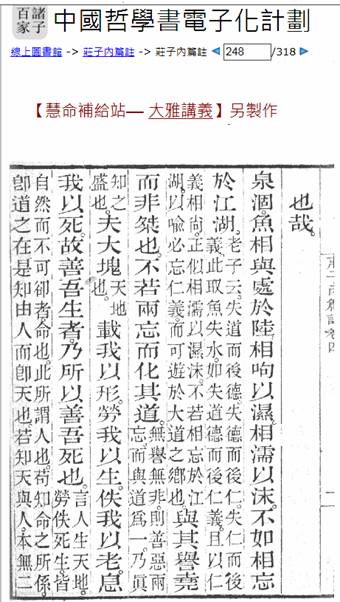 諸子
百家
中國哲學書電子化計劃
線上圖書館 -> 莊子內篇註 -> 莊子內篇註 248 /318
【慧命補給站— 大雅講義】另製作
也哉。
泉涸。魚相與處於陸。相呴以濕。相濡以沫。不如相忘
於江湖。老子云。失道而後德。失德而後仁。失仁而後
義。此取魚失水。如失道德而後仁義。且以仁
義相尚。正似相濡以濕沫。不若相忘於江
湖。以喻必忘仁義。而可遊於大道之鄉也。與其譽堯
而非桀也。不若兩忘而化其道。無譽無非。則善惡兩
忘。而與道為一。乃眞
知之
盛也。夫大塊天地也。載我以形。勞我以生。佚我以老。息
我以死。故善吾生者。乃所以善吾死也。言人生天地。
勞佚死生皆
自然而不可卻者。命也。此所謂人也。苟知命之所係。
卽道之在是。知由人而卽天也。若知天與人。本無二